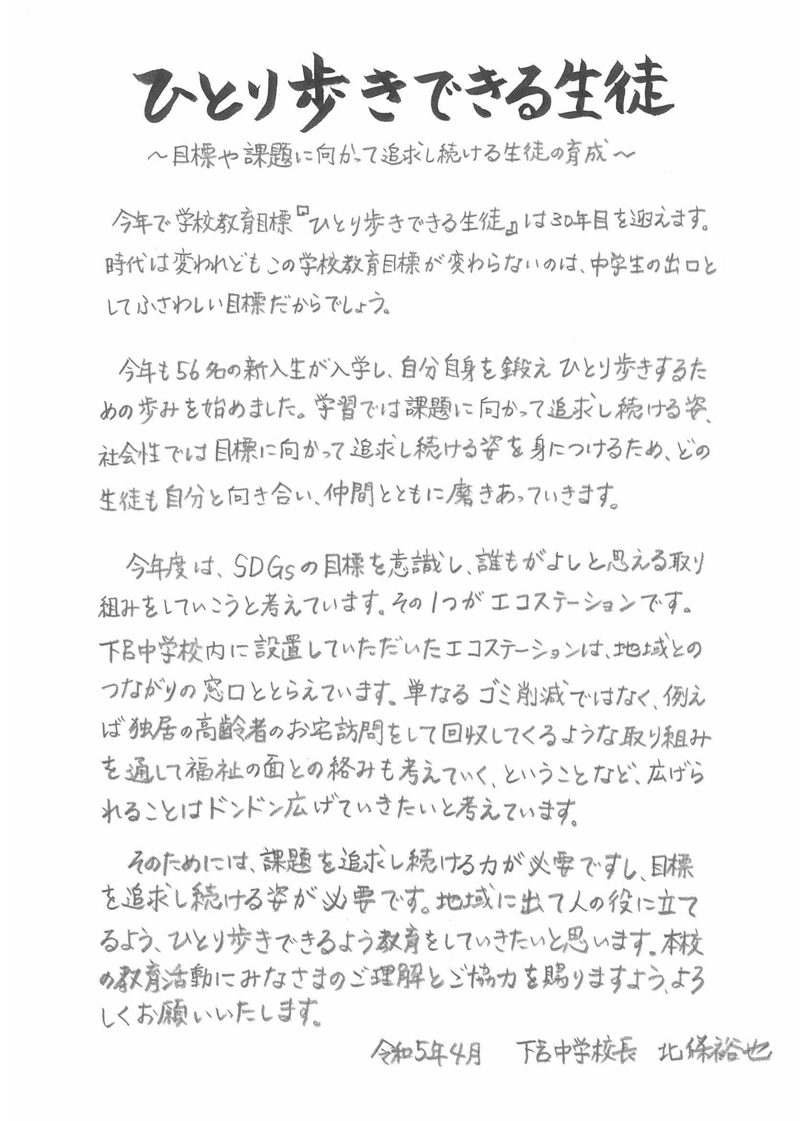 ひとり歩きできる生徒
～目標や課題に向かって追求し続ける生徒の育成～
今年で学校教育目標『ひとり歩きできる生徒』は30年目を迎えます。
時代は変われどもこの学校教育目標が変わらないのは、中学生の出口と
してふさわしい目標だからでしょう。
今年も56名の新入生が入学し、自分自身を鍛えひとり歩きするた
めの歩みを始めました。学習では課題に向かって追求し続ける姿、
社会性では目標に向かって追求し続ける姿を身につけるため、どの
生徒も自分と向き合い、仲間とともに磨きあっていきます。
今年度は、SDGsの目標を意識し、誰もがよしと思える取り
組みをしていこうと考えています。その1つがエコステーションです。
下呂中学校内に設置していただいたエコステーションは、地域との
つながりの窓口ととらえています。単なるゴミ削減ではなく、例え
ば独居の高齢者のお宅訪問をして回収してくるような取り組み
を通して福祉の面との絡みも考えていく、ということなど、広げら
れることはドンドン広げていきたいと考えています。
そのためには、課題を追求し続ける力が必要ですし、目標
を追求し続ける姿が必要です。地域に出て人の役に立て
るよう、ひとり歩きできるよう教育をしていきたいと思います。本校
の教育活動にみなさまのご理解とご協力を賜りますよう、よろ
しくお願いいたします。
令和5年4月　下呂中学校長　北條裕也